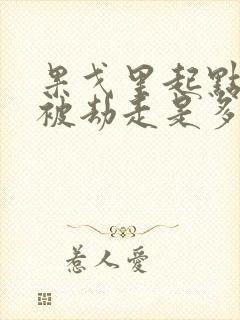 果戈里起點
被劫走是多
惹人愛